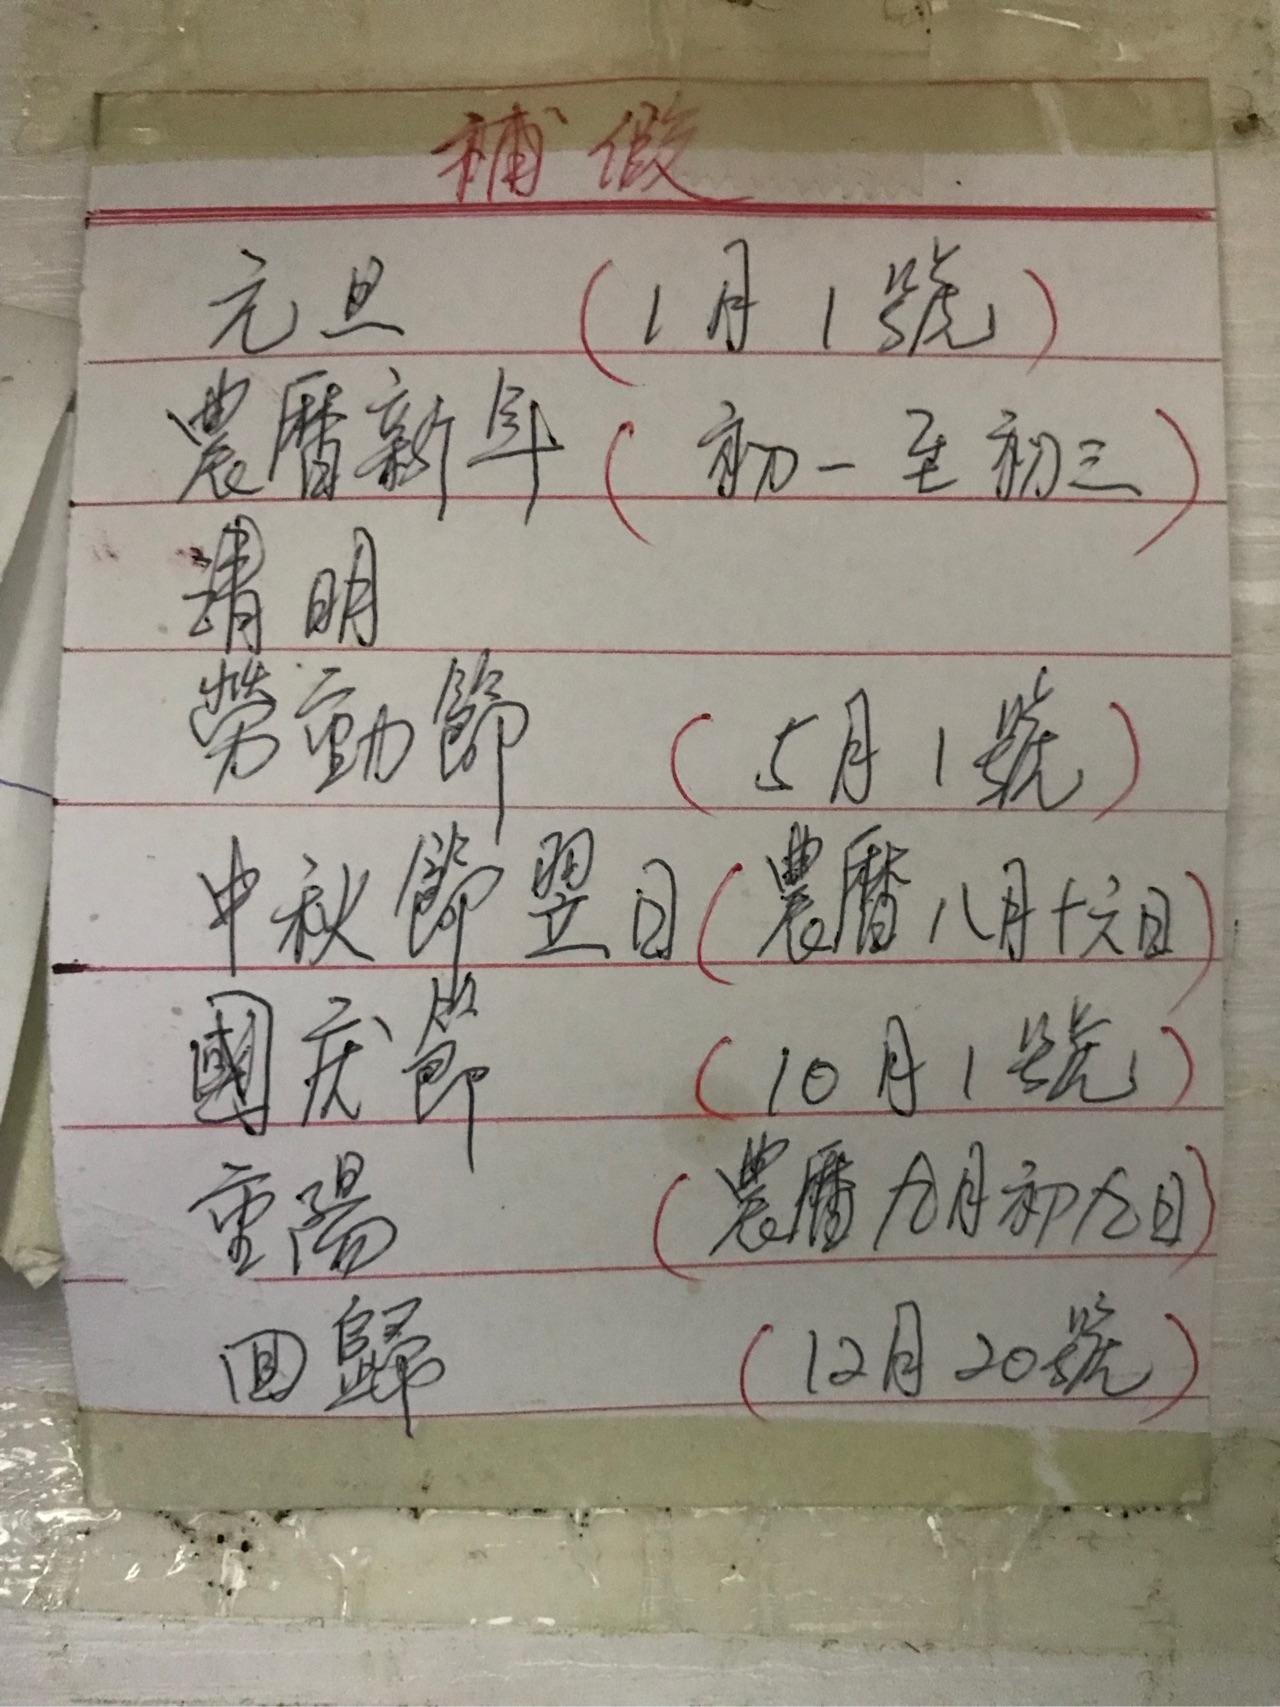 補假
元旦 (1月1號)
農曆新年 (初一至初三)
清明
勞動節 (5月1號)
中秋節翌日 (農曆八月十六日)
國庆節 (10月1號)
重陽 (農曆九月初九日)
回歸 (12月20號)